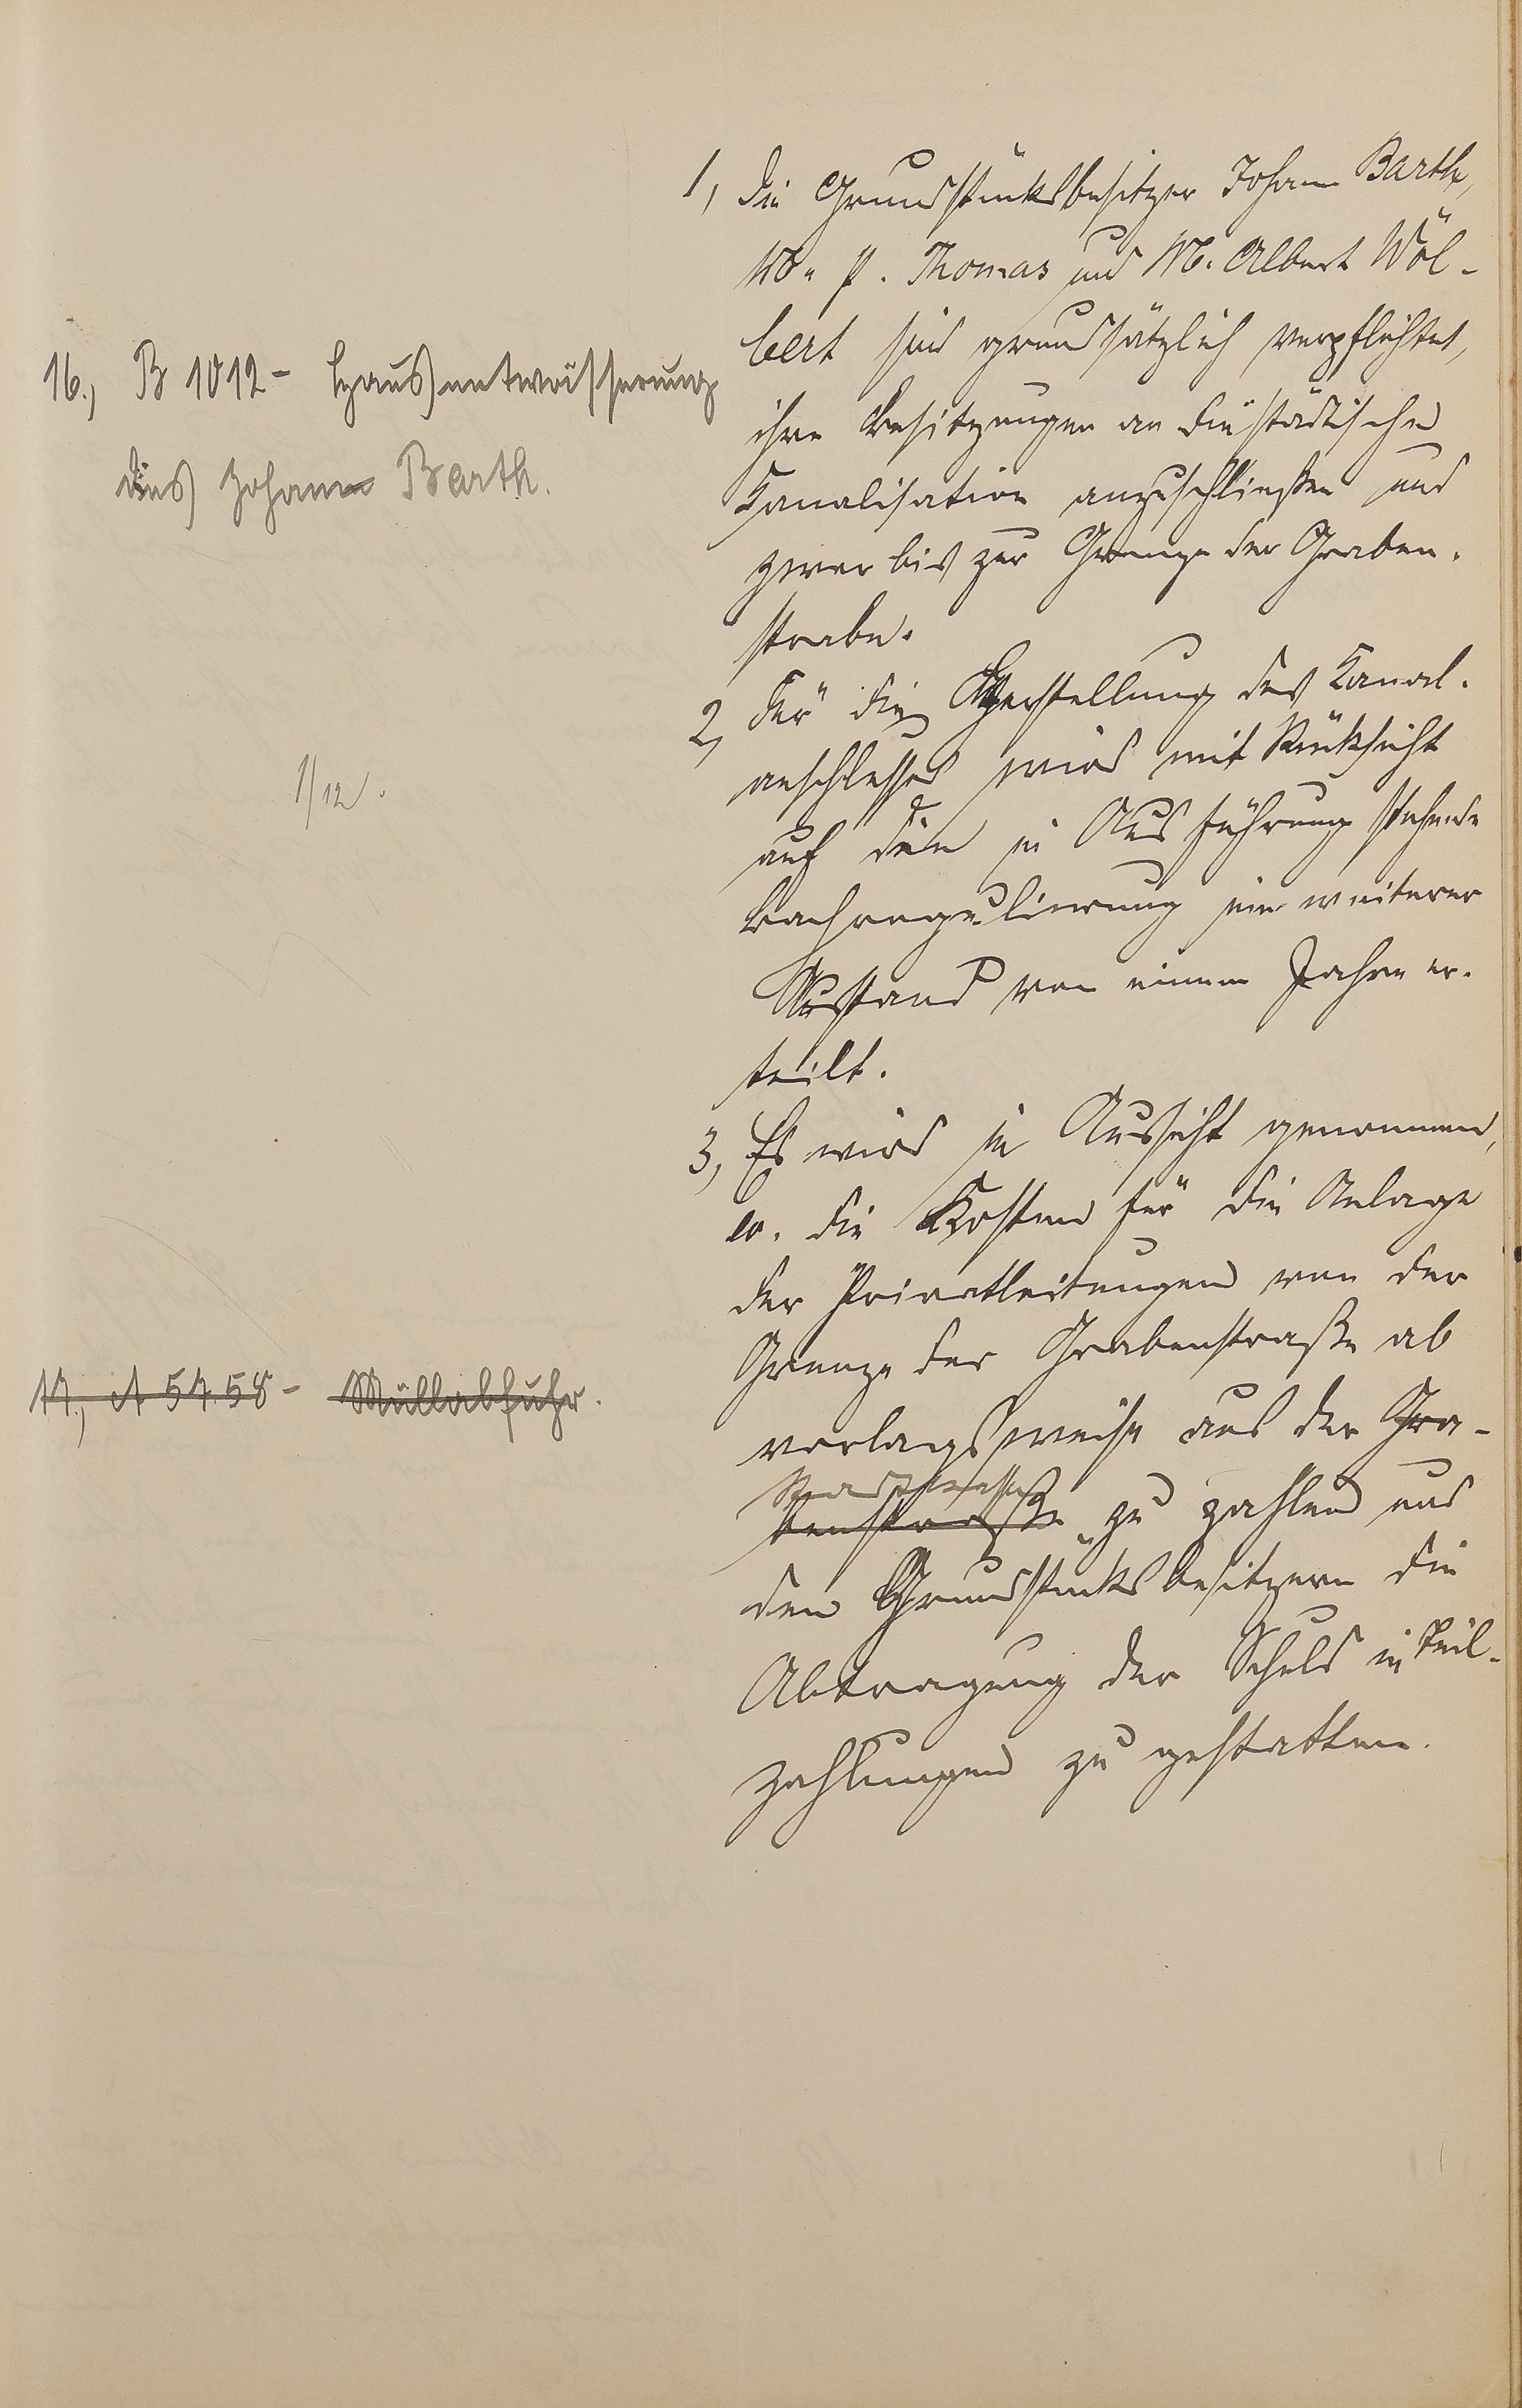 16., B 1012 - Hausentwässerung
des Johann Barth.
1/12.
17., A 5758 - Müllabfuhr.
1, Die Grundstücksbesitzer Johann Barth,
W. P. Thomas und M. Albert Wöl-
bert sind grundsätzlich verpflichtet,
ihre Besitzungen an die städtische
Kanalisation anzuschließen und
zwar bis zur Grenze der Graben-
straße.
2, Für die Herstellung des Kanal-
anschlusses wird mit Rücksicht
auf die in Ausführung stehende
Bachregulierung ein weiterer
Ausstand von einem Jahre er-
teilt.
3, Es wird in Aussicht genommen,
ev. die Kosten für die Anlage
der Privatleitungen von der
Grenze der Grabenstraße ab
vorlagsweise aus der Gra-
Stadtkasse
benstraße zu zahlen und
den Grundstücksbesitzern die
Abtragung der Schuld in Teil-
zahlungen zu gestatten.